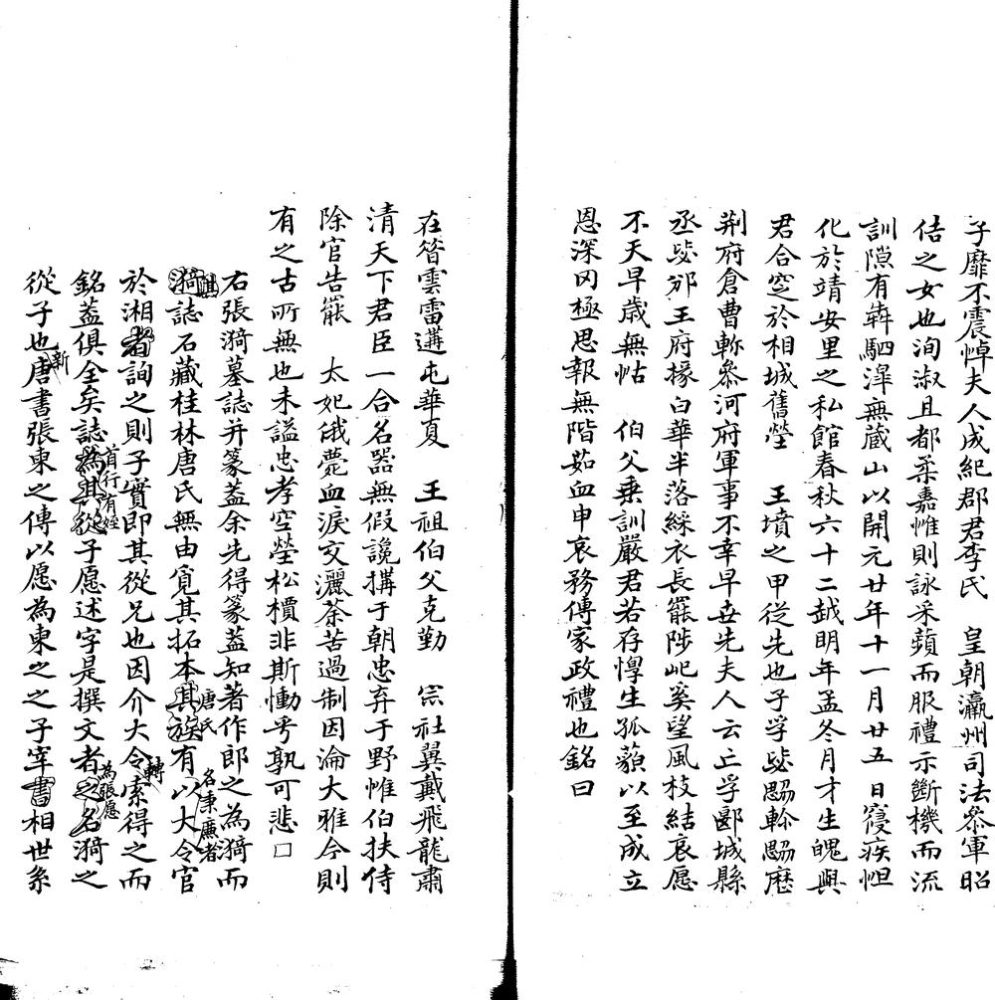 子靡不震悼夫人成紀郡君李氏　皇朝瀛州司法叅軍昭
佶之女也洵淑且都柔嘉惟則詠采蘋而服禮示斷機而流
訓隙有犇駟澤無蔵山以開元廿年十一月廿五日寑疾怛
化於靖安里之私館春秋六十二越明年孟冬月才生魄與
君合窆於相城舊塋　王墳之甲從先也子孚毖騆榦騆歴
荆府倉曹毖叅河府軍事不幸早世先夫人云亡孚郾城縣
丞毖邠王府掾白華半落綵衣長罷陟屺奚望風枝結哀愿
不天早歲無怙　伯父乗訓嚴君若存惸生孤藐以至成立
恩深罔極思報無階茹血申哀務傳家政禮也銘曰
在昝雲雷遘屯華夏　王祖伯父克勤　宗社翼戴飛龍肅
清天下君臣一合名器無假讒搆于朝忠弃于野惟伯扶侍
除官告罷　太妃俄薨血淚交灑荼苦過制因淪大雅今則
有之古所無也未謚忠孝空塋松檟非斯慟兮孰可悲□
右張漪墓誌并篆蓋余先得篆蓋知著作郎之為漪而
漪誌石藏桂林唐氏無由覓其拓本其族有以大令官
祺
唐氏
名秉廉者
於湘者詢之則子實即其從兄也因介大令索得之而
轉
銘蓋俱全矣誌為其從子愿述字是撰文者之名漪之
首行有姪
為張愿
從子也唐書張柬之傳以愿為柬之之子宰書相世系
新